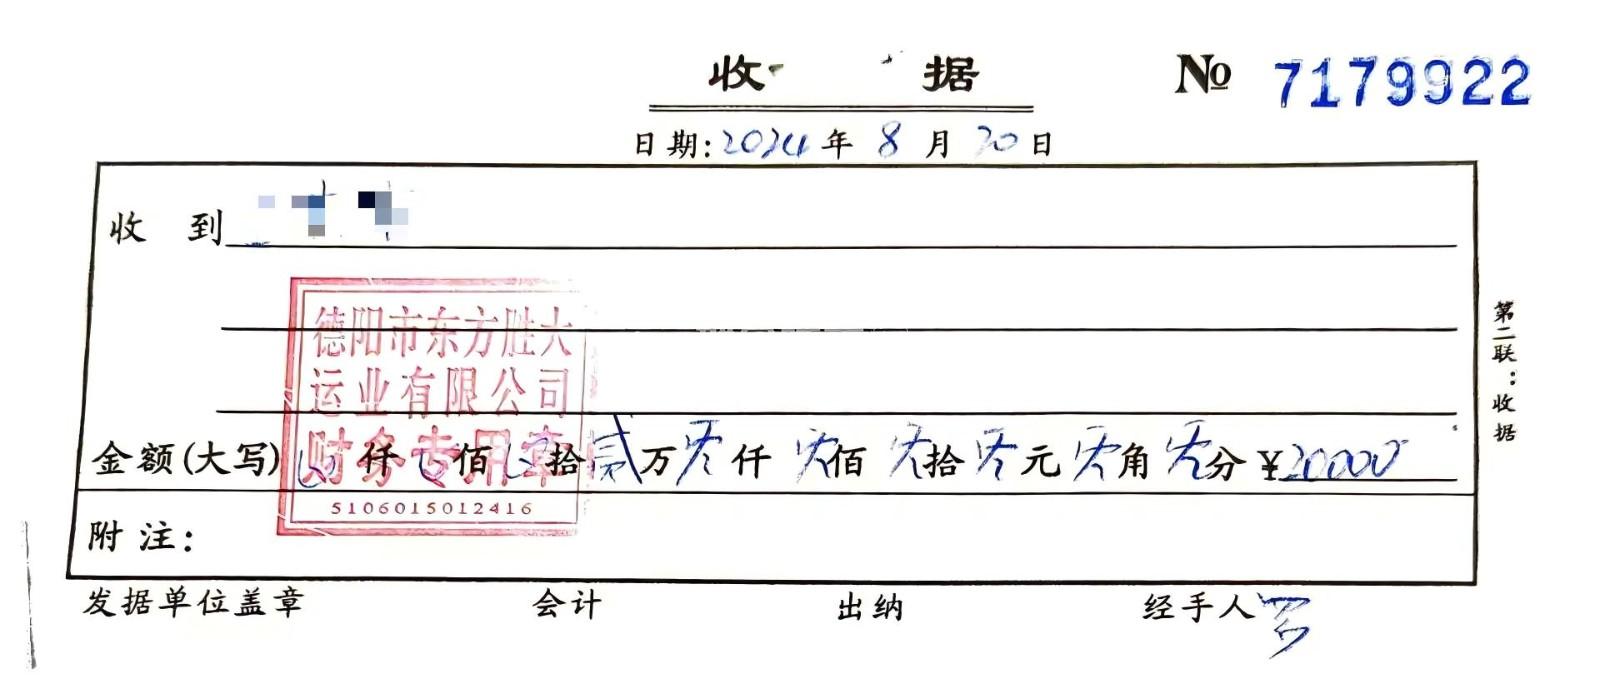 收 据 № 7179922
日期:2024年8月20日
收 到
德阳市东方胜大
运业有限公司
财务专用章
5106015012416
金额(大写) 仟 佰 拾贰万零仟零佰零拾零元零角零分¥20000
附注:
发据单位盖章 会计 出纳 经手人
第二联:收据